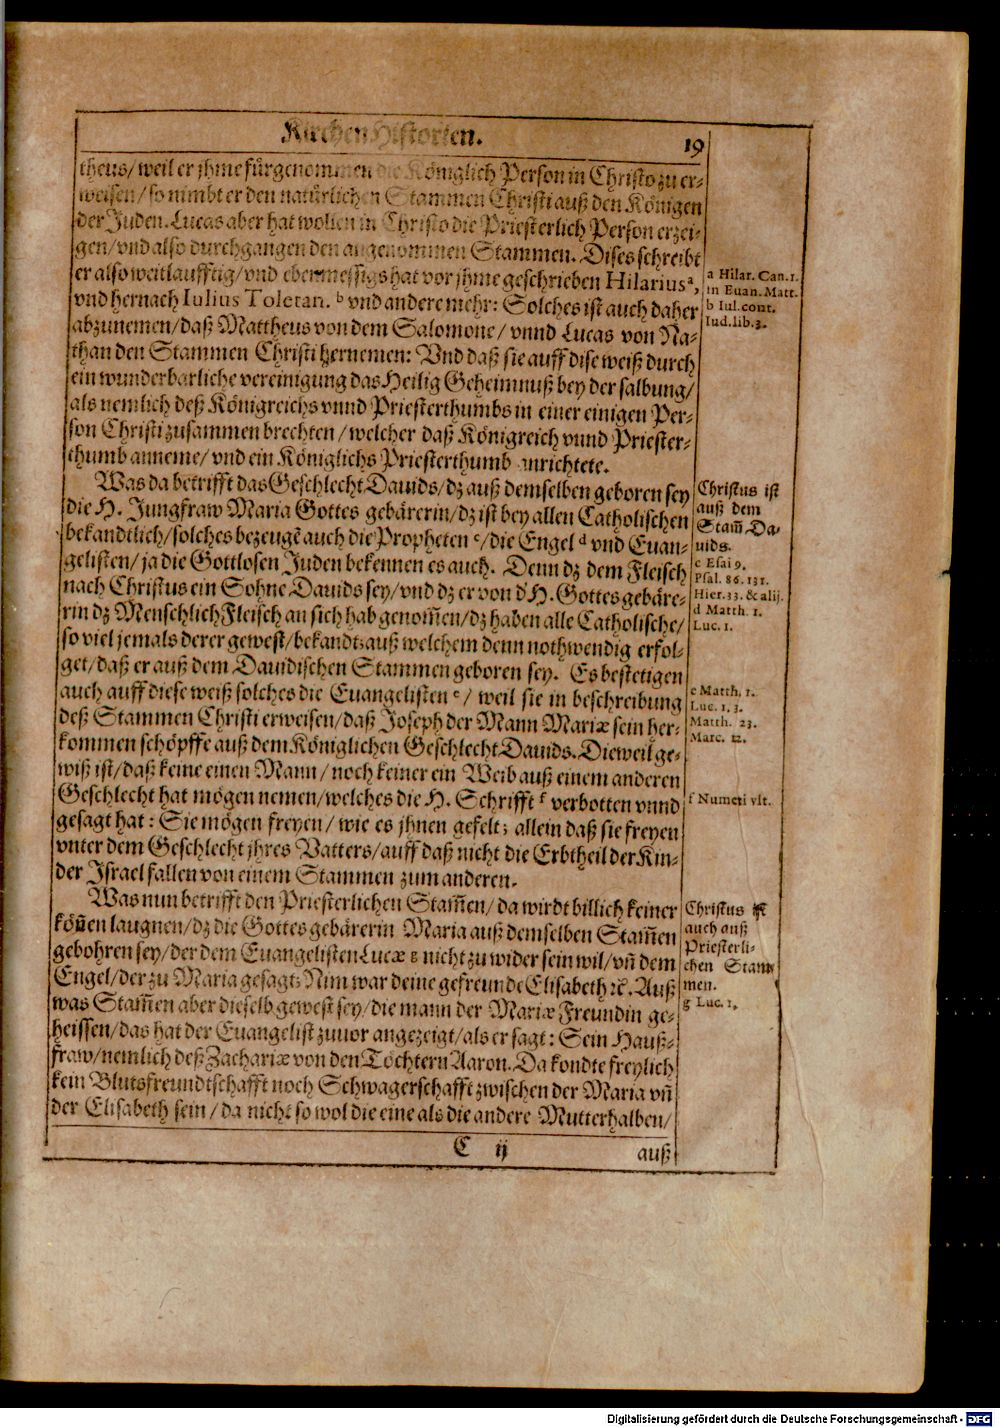 Kirchen Historien. 19
theus/ weil er jhme fürgenommen die Königlich Person in Christo zu er-
weisen/ so nimbt er den natürlichen Stammen Christi auß den Königen
der Juden. Lucas aber hat wollen in Christo die Priesterlich Person erzei-
gen/ vnd also durchgangen den angenommen Stammen. Dises schreibt
er also weitlaufftig/ vnd ebenmessigs hat vor jhme geschrieben Hilarius ᵃ,
vnd hernach Iulius Toletan. ᵇ vnd andere mehr: Solches ist auch daher
abzunemen/ daß Mattheus von dem Salomone/ vnnd Lucas von Na-
than den Stammen Christi hernemen: Vnd daß sie auff dise weiß durch
ein wunderbarliche vereinigung das Heilig Geheimnuß bey der salbung/
als nemlich deß Königreichs vnnd Priesterthumbs in einer einigen Per-
son Christi zusammen brechten/ welcher daß Königreich vnnd Priester-
thumb anneme/ vnd ein Königlichs Priesterthumb anrichtete.
a Hilar. Can. 1.
in Euan. Matt.
b Iul. cont.
Iud. lib. 3.
Was da betrifft das Geschlecht Dauids/ dz auß demselben geboren sey
die H. Jungfraw Maria Gottes gebärerin/ dz ist bey allen Catholischen
bekandtlich/ solches bezeugẽ auch die Propheten ᶜ/ die Engel ᵈ vnd Euan-
gelisten/ ja die Gottlosen Juden bekennen es auch. Denn dz dem Fleisch
nach Christus ein Sohne Dauids sey/ vnd dz er von d' H. Gottes gebäre-
rin dz Menschlich Fleisch an sich hab genom̃en/ dz haben alle Catholische/
so viel jemals derer gewest/ bekandt: auß welchem denn nothwendig erfol-
get/ daß er auß dem Dauidischen Stammen geboren sey. Es bestetigen
auch auff diese weiß solches die Euangelisten ᵉ/ weil sie in beschreibung
deß Stammen Christi erweisen/ daß Joseph der Mann Mariæ sein her-
kommen schöpffe auß dem Königlichen Geschlecht Dauids. Dieweil ge-
wiß ist/ daß keine einen Mann/ noch keiner ein Weib auß einem anderen
Geschlecht hat mögen nemen/ welches die H. Schrifft ᶠ verbotten vnnd
gesagt hat: Sie mögen freyen/ wie es jhnen gefelt; allein daß sie freyen
vnter dem Geschlecht jhres Vatters/ auff daß nicht die Erbtheil der Kin-
der Israel fallen von einem Stammen zum anderen.
Christus ist
auß dem
Stam̃ Da-
uids.
c Esai 9.
Psal. 86. 131.
Hier. 33. & alij.
d Matth. 1.
Luc. 1.
e Matth. 1.
Luc. 1. 3.
Matth. 23.
Marc. 12.
f Numeri vlt.
Was nun betrifft den Priesterlichen Stam̃en/ da wirdt billich keiner
köñen laugnen/ dz die Gottes gebärerin Maria auß demselben Stam̃en
gebohren sey/ der dem Euangelisten Lucæ ᵍ nicht zu wider sein wil/ vñ dem
Engel/ der zu Maria gesagt: Nim war deine gefreunde Elisabeth ꝛc. Auß
was Stam̃en aber dieselb gewest sey/ die mann der Mariæ Freundin ge-
heissen/ das hat der Euangelist zuuor angezeigt/ als er sagt: Sein Hauß-
fraw/ nemlich deß Zachariæ von den Töchtern Aaron. Da kondte freylich
kein Blutsfreundtschafft noch Schwagerschafft zwischen der Maria vñ
der Elisabeth sein/ da nicht so wol die eine als die andere Mutterhalben/
Christus ist
auch auß
Priesterli-
chen Stam-
men.
g Luc. 1.
C ij auß
Digitalisierung gefördert durch die Deutsche Forschungsgemeinschaft - DFG